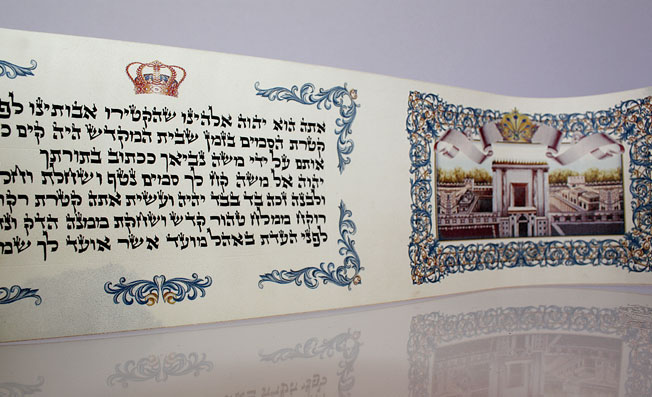 אתה הוא יהוה אלהינו שהקטירו אבותינו לפ
קטרת הסמים בזמן שבית המקדש היה קים כ
אותם על ידי משה נביאך ככתוב בתורתך
יהוה אל משה קח לך סמים נטף ושחלת וחל
ולבנה זכה בד בבד יהיה ועשית אתה קטרת רק
רוקח ממולח טהור קדש ושחקת ממנה הדק ונת
לפני העדת באהל מועד אשר אועד לך שמ